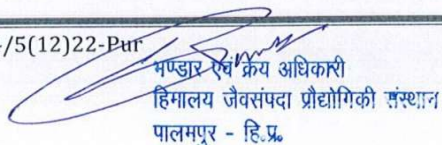 -/5(12)22-Pur
भण्डार एवं क्रय अधिकारी
हिमालय जैवसंपदा प्रौद्योगिकी संस्थान
पालमपुर - हि.प्र.